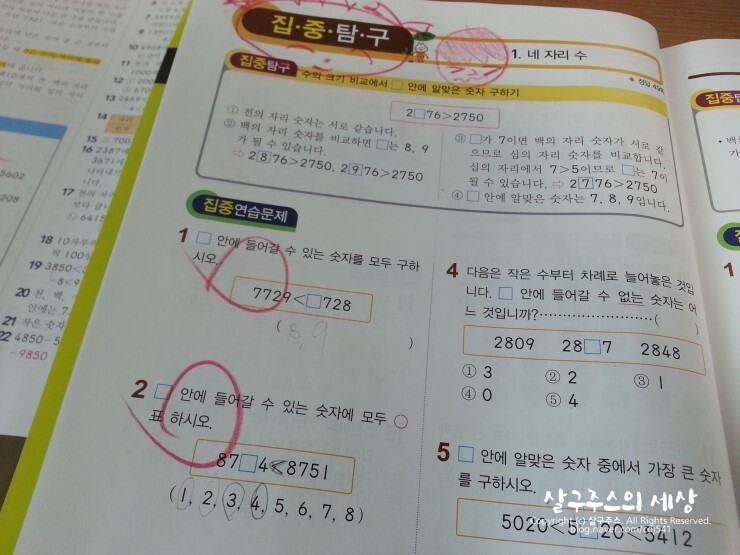 집·중·탐·구
1. 네 자리 수
집중탐구 수의 크기 비교에서 □ 안에 알맞은 숫자 구하기
2□76>2750
① 천의 자리 숫자는 서로 같습니다.
② 백의 자리 숫자를 비교하면 □는 8, 9
가 될 수 있습니다.
⇨ 2876>2750, 2976>2750
③ □가 7이면 백의 자리 숫자가 서로 같
으므로 십의 자리 숫자를 비교합니다.
십의 자리에서 7>5이므로 □는 7이
될 수 있습니다. ⇨ 2776>2750
④ □ 안에 알맞은 숫자는 7, 8, 9입니다.
집중연습문제
1 □ 안에 들어갈 수 있는 숫자를 모두 구하
시오.
7729<□728
( 8, 9 )
2 □ 안에 들어갈 수 있는 숫자에 모두 ○
표 하시오.
87□4<8751
(1, 2, 3, 4, 5, 6, 7, 8)
4 다음은 작은 수부터 차례로 늘어놓은 것입
니다. □ 안에 들어갈 수 없는 숫자는 어
느 것입니까?……………………( )
2809 28□7 2848
① 3 ② 2 ③ 1
④ 0 ⑤ 4
5 □ 안에 알맞은 숫자 중에서 가장 큰 숫자
를 구하시오.
5020<5□20<5412
14
15
16 2387
17
18 10
19 3850
20 천, 백,
21 작은 숫자
22 4850-5
-9850
5602
208
1
살구주스의 세상
Copyright (c) 살구주스. All Rights Reserved.